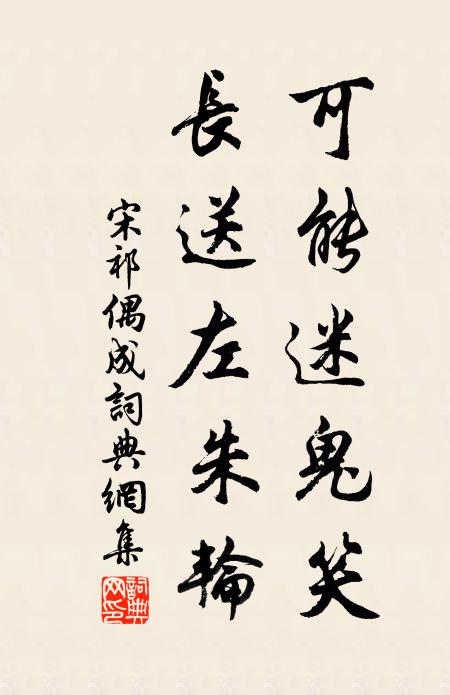 可能迷鬼笑
長送左朱輪
宋祁偶成詞典網集
詞典網印